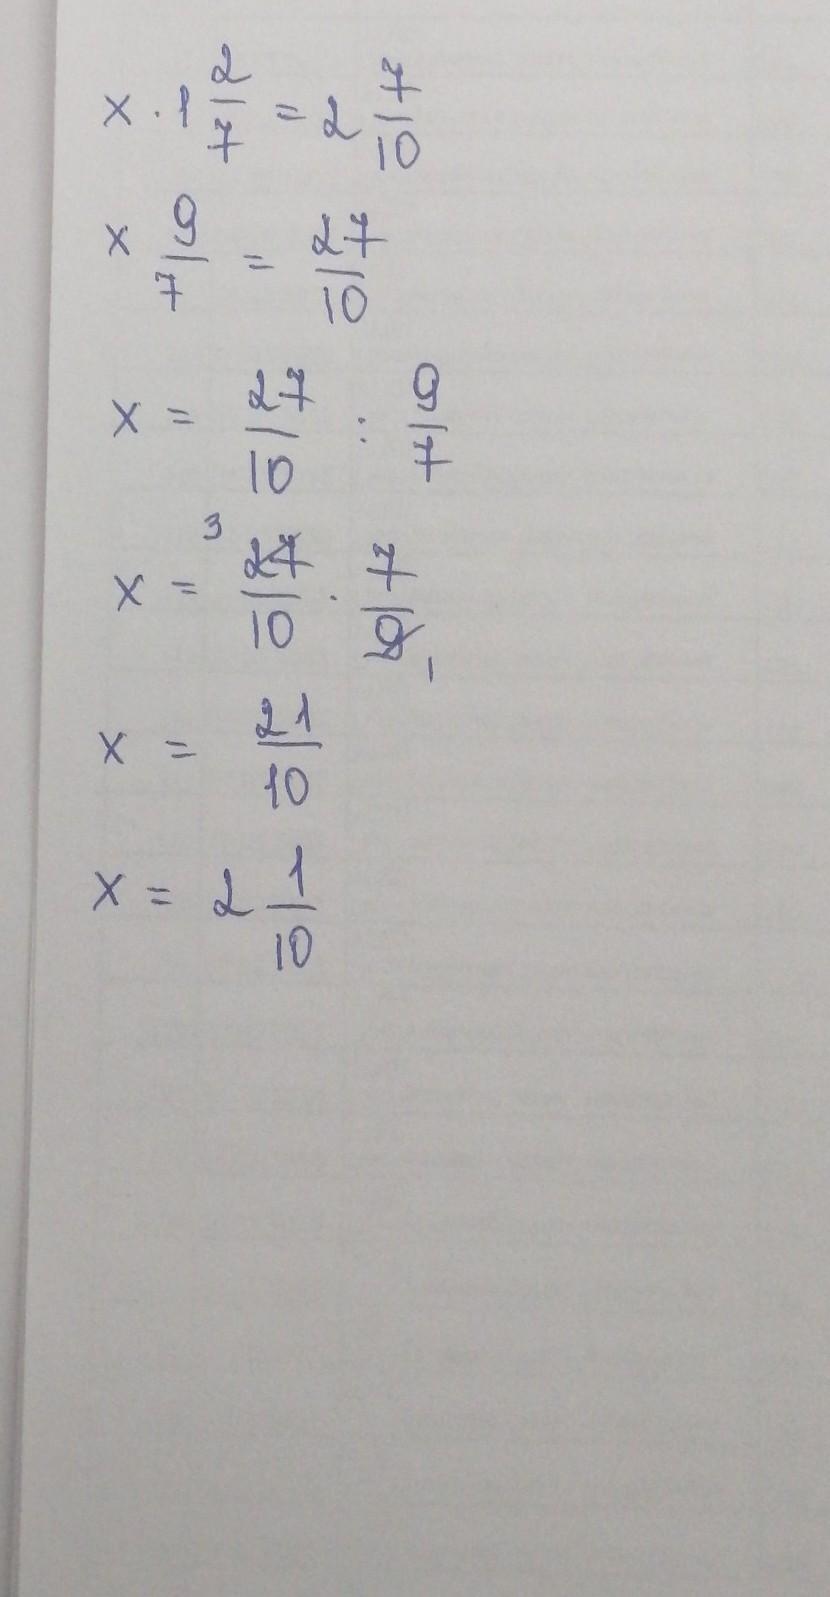 x · 1 2/7 = 2 7/10
x 9/7 = 27/10
x = 27/10 : 9/7
x = 3 27/10 · 7/9 1
x = 21/10
x = 2 1/10